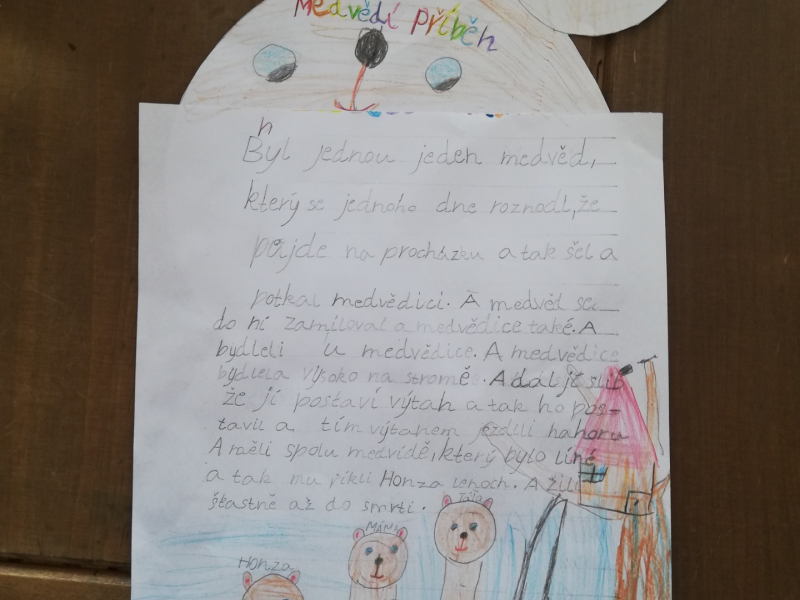 Medvědí příběh
Byl jednou jeden medvěd,
který se jednoho dne roznodl, že
pojde na procházku a tak šel a
potkal medvědici. A medvěd se
do ní zamiloval a medvědice také. A
bydleli u medvědice. A medvědice
bydlela vysoko na stromě. A dal jí slib
že jí postaví výtah a tak ho pos-
tavil a tím výtahem jezdili nahoru
A měli spolu medvídě, který bylo líné
a tak mu říkli Honza lenoch. A žili
šťastně až do smrti.
Táta
Máma
Honza